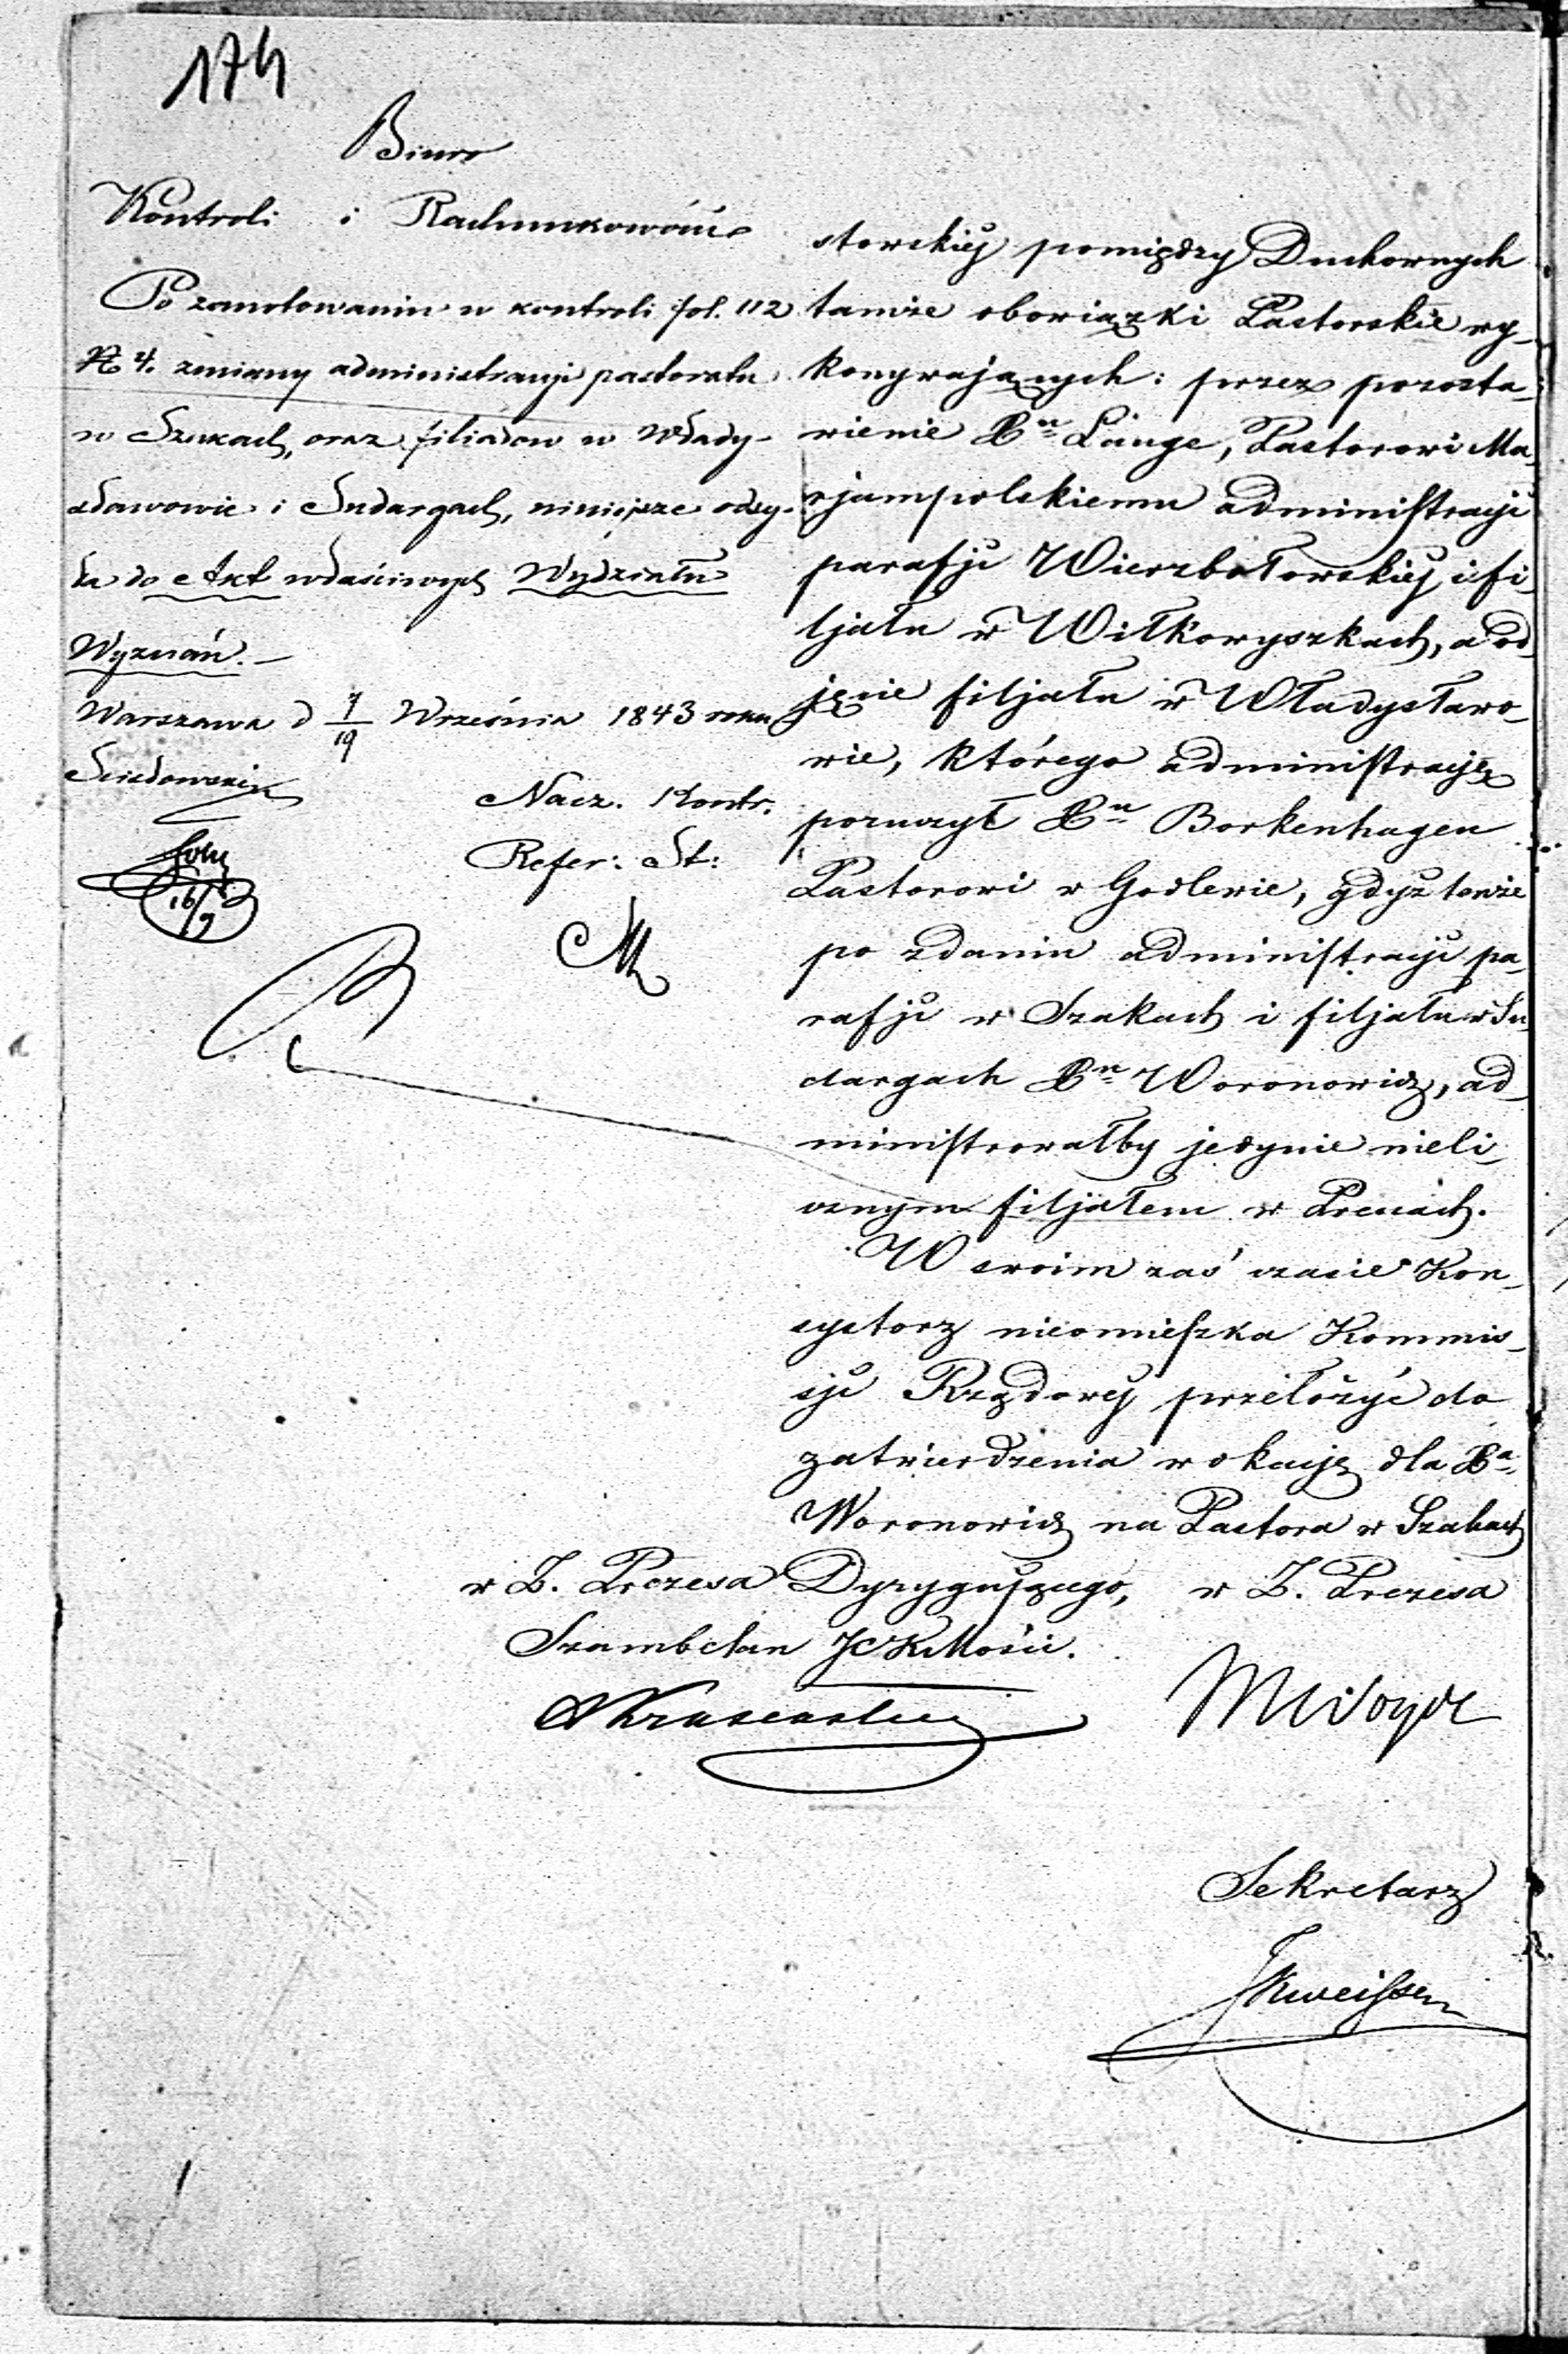 174
Biuro
Kontroli i Rachunkowości
Po zanotowaniu w kontroli fol. 112
№ 4. zmiany administracji pastoratu
w Szakach, oraz filiałów w Włady-
sławowie i Sudargach, niniejsze odsy-
ła do Akt właściwych Wydziału
Wyznań. —
Warszawa d 7/19 Września 1843 roku
Nacz. Kontr.
Refer: St:
16/9
storskiej pomiędzy Duchownych
tamże obowiązki Pastorskie wy-
konywających: przez pozosta-
wienie Xu Lange, Pastorowi Ma-
rjampolskiemu administracji
parafji Wierzbołowskiej i fi-
ljału w Wiłkowyszkach, a od-
jęcie filjału w Władysławo-
wie, którego administracje
poruczył Xu Borkenhagen
Pastorowi w Godlewie, gdyż tenże
po zdaniu administracji pa-
rafji w Szakach i filjału w Su-
dargach Xu Woronowicz, ad-
ministrowałby jedynie nieli-
cznym filjałem w Prenach.
W swoim zaś czasie Kon-
systorz nieomieszka Kommis-
sji Rządowej przełożyć do
zatwierdzenia wokację dla Xa
Woronowicz na Pastora w Szakach
w Z. Prezesa Dyrygującego, w Z. Prezesa
Szambelan JCKMości.
Sekretarz